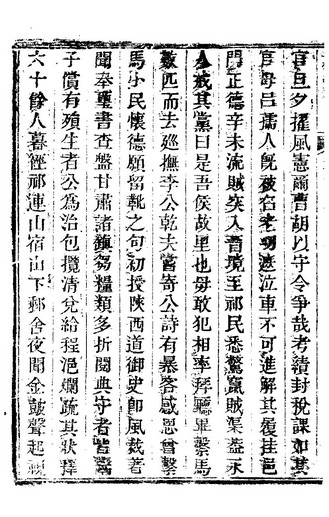 官旦夕擢風憲爾曹胡以守令爭哉考績封稅課如其
官母呂孺人旣被召老羽遮泣車不可進解其履挂邑
門正德辛未流賊突入晉境至祁民悉驚竄賊渠蓋永
人戒其黨曰是吾侯故里也毋敢犯相率拜廳畢繫馬
數匹而去巡撫李公乾夫嘗寄公詩有暴客感恩曾繫
馬小民懷德願留靴之句初授陝西道御史卽風裁著
聞奉璽書查盤甘肅諸鎮芻糧類多折閱典守者皆鬻
子償有殞生者公為治包攬清兌給程浥爛疏其狀釋
六十餘人暮徑祁連山宿山下郵舍夜聞金鼓聲起